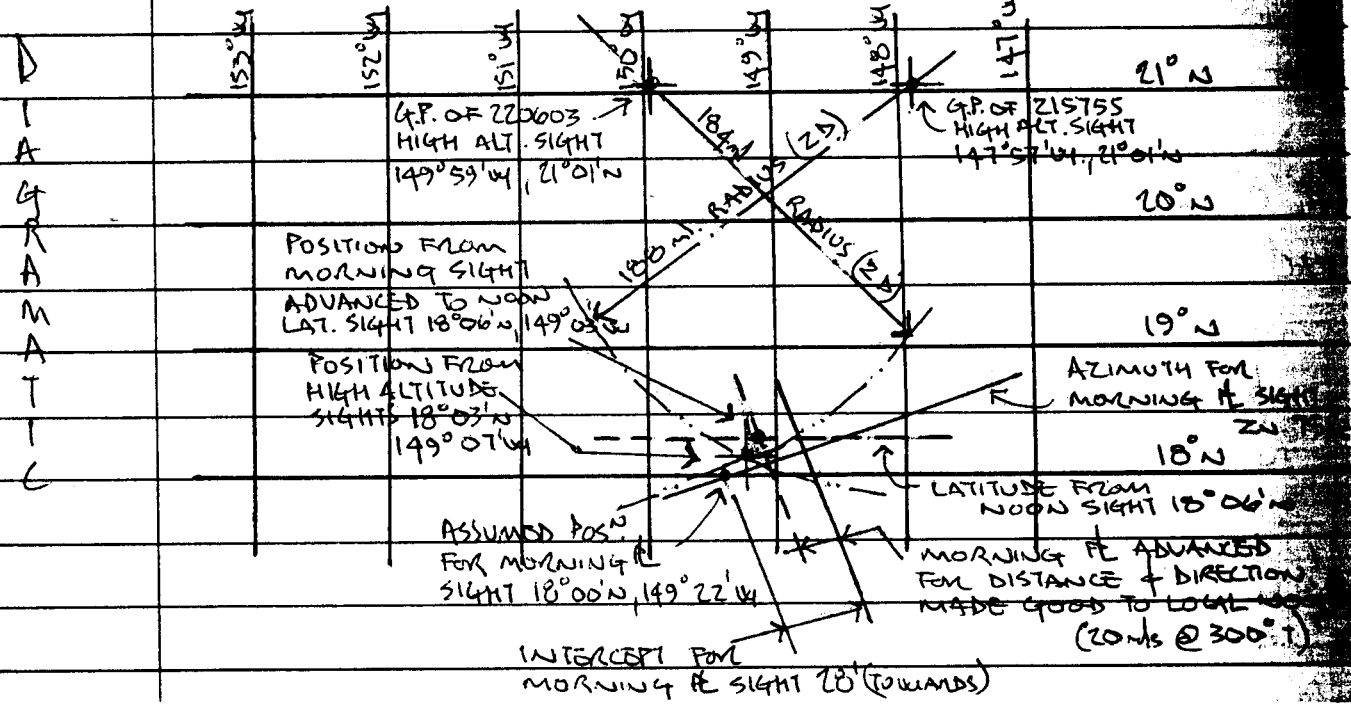 DIAGRAMATIC
153°W
152°W
151°W
150°W
149°W
148°W
147°W
21°N
20°N
19°N
18°N
G.P. OF 220603
HIGH ALT. SIGHT
149°59'W, 21°01'N
G.P. OF 215755
HIGH ALT. SIGHT
147°57'W, 21°01'N
184 M
RADIUS (ZD)
180 M. RADIUS (ZD)
POSITION FROM
MORNING SIGHT
ADVANCED TO NOON
LAT. SIGHT 18°06'N, 149°05'W
POSITION FROM
HIGH ALTITUDE
SIGHTS 18°03'N
149°07'W
AZIMUTH FOR
MORNING PL SIGHT
ZN
LATITUDE FROM
NOON SIGHT 18°06'N
ASSUMED POS'N
FOR MORNING PL
SIGHT 18°00'N, 149°22'W
MORNING PL ADVANCED
FOR DISTANCE & DIRECTION
MADE GOOD TO LOCAL
(20 mls @ 300°T)
INTERCEPT FOR
MORNING PL SIGHT 28' (TOWARDS)